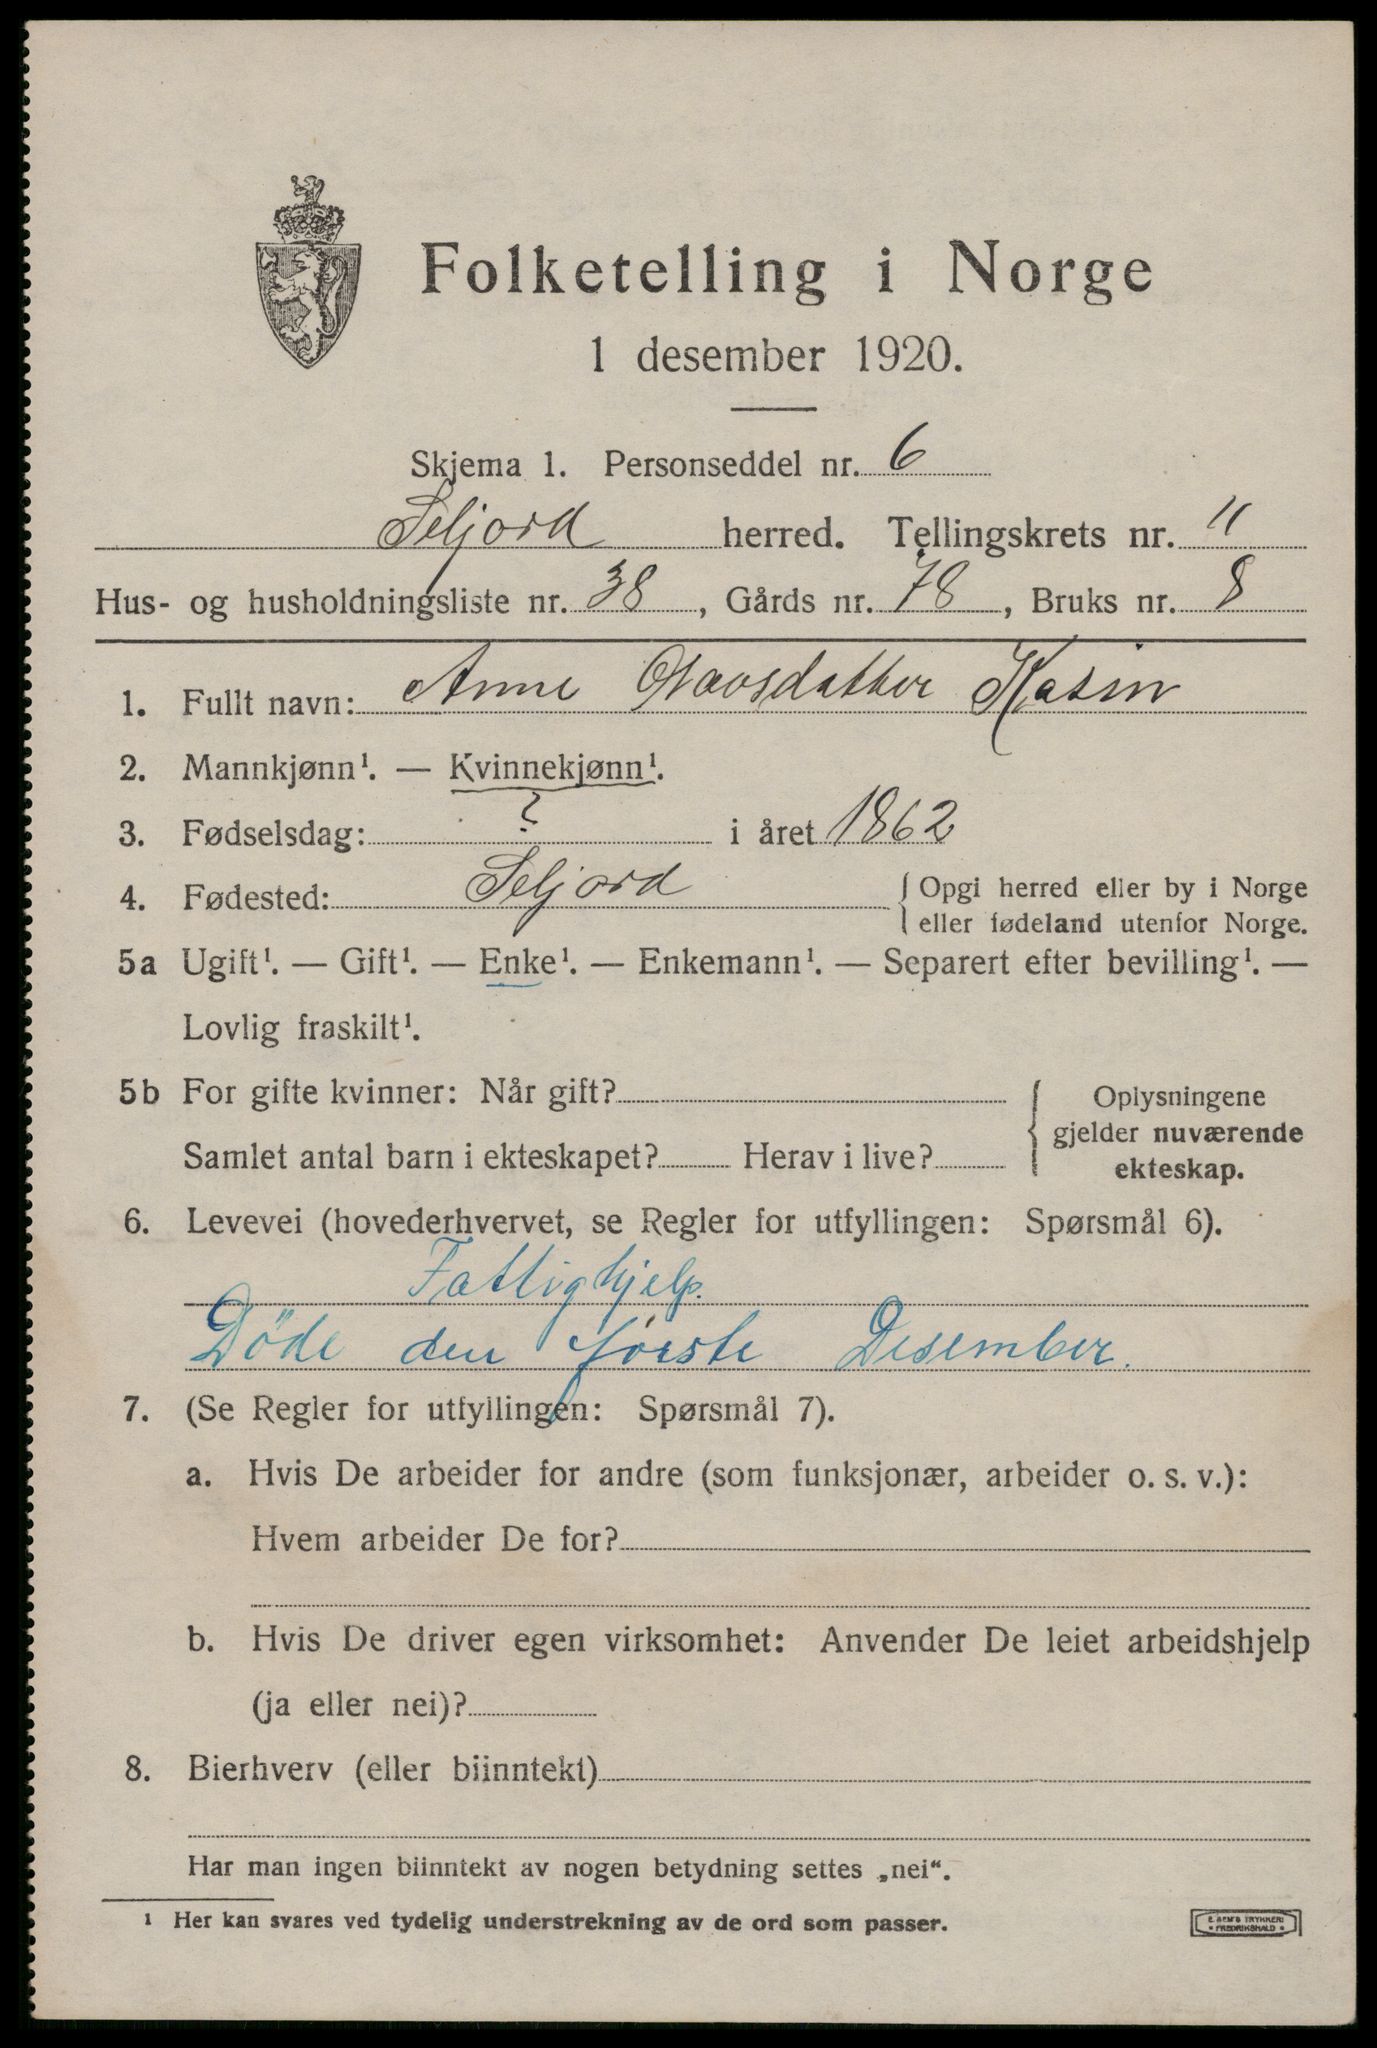 Folketelling i Norge
1 desember 1920.
Skjema 1. Personseddel nr. 6
Seljord herred. Tellingskrets nr. 11
Hus- og husholdningsliste nr. 38, Gårds nr. 78, Bruks nr. 8
1. Fullt navn: Anne Olavsdatter Kasin
2. Mannkjønn¹. — Kvinnekjønn¹.
3. Fødselsdag: ? i året 1862
4. Fødested: Seljord { Opgi herred eller by i Norge
eller fødeland utenfor Norge.
5a Ugift¹. — Gift¹. — Enke¹. — Enkemann¹. — Separert efter bevilling¹. —
Lovlig fraskilt¹.
5b For gifte kvinner: Når gift? { Oplysningene
gjelder nuværende
ekteskap.
Samlet antal barn i ekteskapet? Herav i live?
6. Levevei (hovederhvervet, se Regler for utfyllingen: Spørsmål 6).
Fattighjelp.
Döde den förste Desember.
7. (Se Regler for utfyllingen: Spørsmål 7).
a. Hvis De arbeider for andre (som funksjonær, arbeider o. s. v.):
Hvem arbeider De for?
b. Hvis De driver egen virksomhet: Anvender De leiet arbeidshjelp
(ja eller nei)?
8. Bierhverv (eller biinntekt)
Har man ingen biinntekt av nogen betydning settes „nei“.
¹ Her kan svares ved tydelig understrekning av de ord som passer.
E. SEM'S TRYKKERI
• FREDRIKSHALD •